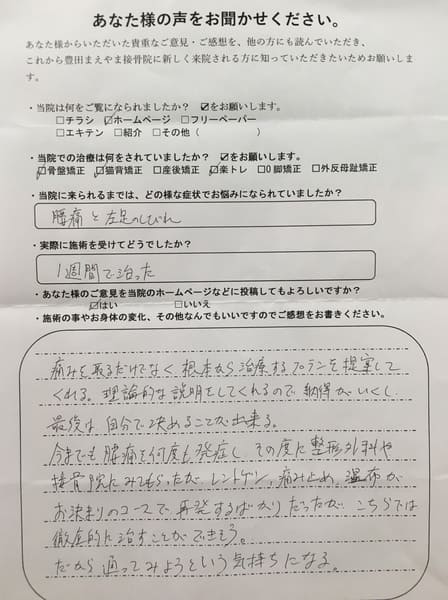 あなた様の声をお聞かせください。
あなた様からいただいた貴重なご意見・ご感想を、他の方にも読んでいただき、
これから豊田まえやま接骨院に新しく来院される方に知っていただきたいためお願いしま
す。
・当院は何をご覧になられましたか？ ☑をお願いします。
□チラシ ☑ホームページ □フリーペーパー
□エキテン □紹介 □その他（　　　　　）
・当院での治療は何をされていましたか？ ☑をお願いします。
☑骨盤矯正 ☑猫背矯正 □産後矯正 ☑楽トレ □O脚矯正 □外反母趾矯正
・当院に来られるまでは、どの様な症状でお悩みになられていましたか？
腰痛と左足のしびれ
・実際に施術を受けてどうでしたか？
1週間で治った
・あなた様のご意見を当院のホームページなどに投稿してもよろしいですか？
☑はい □いいえ
・施術の事やお身体の変化、その他なんでもいいですのでご感想をお書きください。
痛みを取るだけでなく、根本から治療するプランを提案して
くれる。理論的な説明をしてくれるので納得がいくし、
最後は自分で決めることが出来る。
今までも腰痛を何度も発症し、その度に整形外科や
接骨院にみてもらったが、レントゲン、痛み止め、湿布が
お決まりのコースで、再発するばかりだったが、こちらでは
徹底的に治すことができそう。
だから通ってみようという気持ちになる。